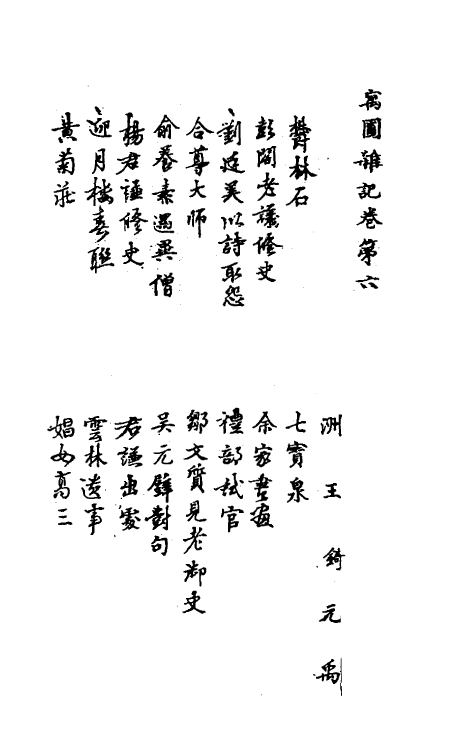 寓圃雜記卷第六
洲 王 錡 元 禹
鬱林石
七寶泉
彭閣老議修史
余家書畫
劉廷美以詩取怨
禮部試官
合尊大師
鄒文質見老御史
俞養素遇異僧
吳元璧對句
楊君謙修史
君謙出處
迎月樓春聯
雲林遺事
黄菊莊
娼女高三